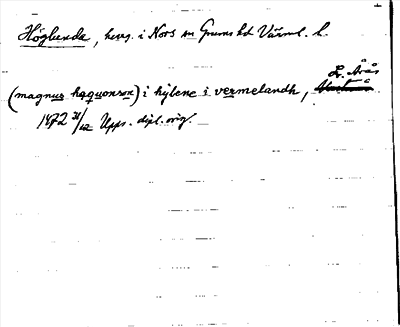 Höglunda, herg. i Nors sn Grums hd Värml. l.
L. Årås
(magnus haquonson) i hylene i vermelandh,
1472 31/12 Upps. dipl. orig.